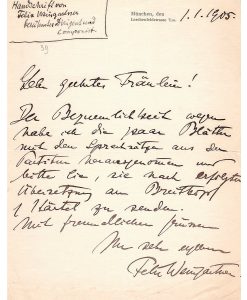 Handschrift von
Felix Weingartner
berühmter Dirigent und
Componist
39
München, den
1.1.1905.
Sehr geehrtes Fräulein!
Der Bequemlichkeit wegen
habe ich die paar Blätter
mit den Sprechsätzen aus den
Partituren herausgenommen und
bitte Sie, sie nach erfolgter
Übersetzung an Breitkopf
& Härtel zu senden.
Mit freundlichen Grüssen
Ihr sehr ergebener
Felix Weingartner